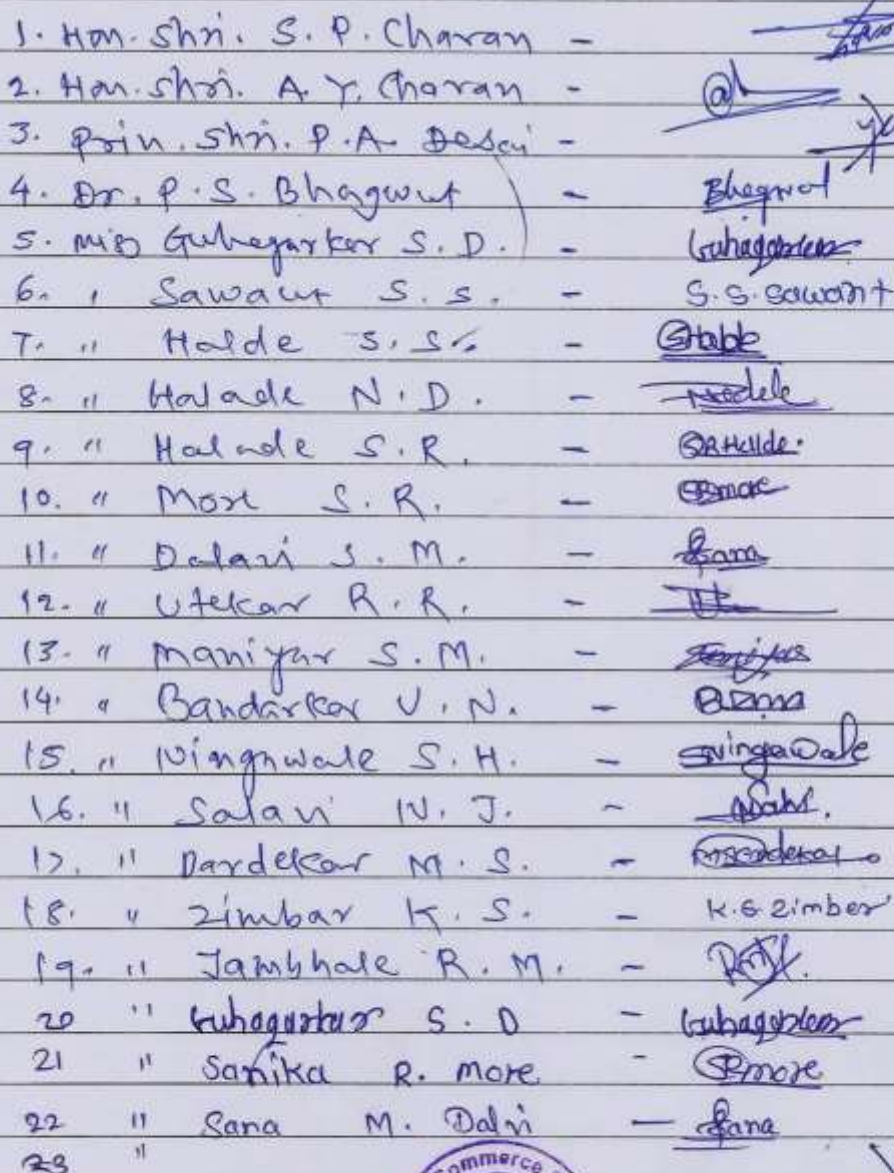 1. Hon. Shri. S. P. Chavan -
2. Hon. Shri. A. Y. Chavan -
3. Prin. Shri. P.A. Desai -
4. Dr. P. S. Bhagwut - Bhagwat
5. Miss Guhagarkar S. D. - Guhagarkar
6. " Sawant S. S. - S. S. Sawant
7. " Halde S. S. -
8. " Halade N. D. -
9. " Halade S. R. - SRHalde.
10. " More S. R. - SRmore
11. " Dalavi S. M. - Sana
12. " Utekar R. R. -
13. " Maniyar S. M. -
14. " Bandarkar V. N. -
15. " Ningawale S. H. - SNingawale
16. " Salavi N. J. -
17. " Dardekar M. S. -
18. " Zimbar K. S. - K.S Zimber
19. " Jambhale R. M. -
20 " Guhagarkar S. D - Guhagarkar
21 " Sanika R. More - SRmore
22 " Sana M. Dalvi - Sana
23 "
Commerce